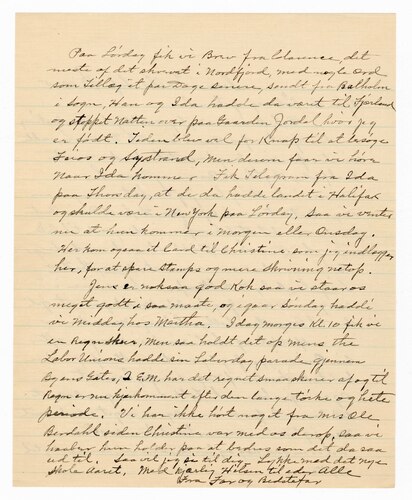 Paa Lørdag fik vi Brev fra Clarence, det
meste af det skrevet i Nordfjord, med nogle Ord
som Tillæg et par Dage senere, sendt fra Balholm
i Sogn, Han og Ida hadde da været til Fjærland
og stoppet Natten over paa Gaarden Jordal hvor jeg
er født. Tiden blev vel for Knap til at besøge
Feios og Systrand, Men derom faar vi høre
Naar Ida kommer. Fik Telegram fra Ida
paa Thorsday, at de da hadde landet i Halifax
og skulde være i New York paa Lørdag, saa vi venter
nu at hun kommer i Morgen eller Onsdag.
Her kom ogsaa et Card til Christine, som jeg indlægger
her, for at spare Stamps og mere Skrivning netop.
Jens er noksaa god Kok saa vi staar os
meget godt i saa maate, og igaar Søndag hadde
vi Middag hos Martha. I dag Morges Kl. 10 fik vi
en Regn Skur, Men saa holdt det op mens the
Labor Unions hadde sin Laborday parade gjennem
Byens Gater, I E.M. har det regnet smaaskurer af og til
Regn er nu kjækomment efter den lange tørke og hete
periode. Vi har ikke hørt noget fra Mrs Ole
Berdahl siden Christine var med os derop, saa vi
haaber hun holder paa at bedres som det da saa
ud til. Saa vil jeg si til dig Lykke med det nye
Skole Aaret, Med Kjærlig Hilsen til eder Alle
Fra Far og Bedstefar